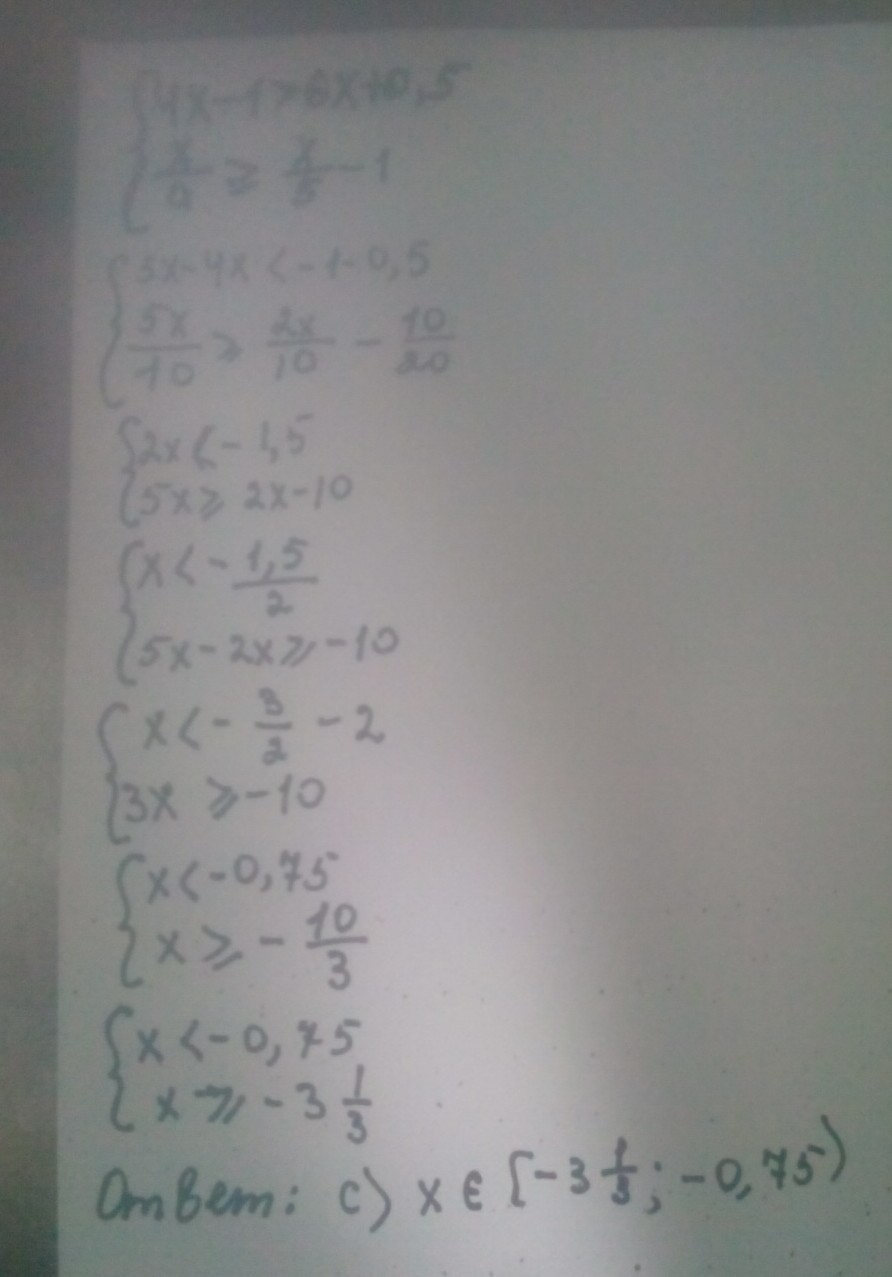 {4x-1>6x+0,5
{x/2 ≥ x/5 - 1
{5x-4x<-1-0,5
{5x/10 ≥ 2x/10 - 10/20
{2x<-1,5
{5x≥2x-10
{x<-1,5/2
{5x-2x≥-10
{x<-3/2-2
{3x≥-10
{x<-0,75
{x≥-10/3
{x<-0,75
{x≥-3 1/3
Ответ: с) x∈[-3 1/3; -0,75)